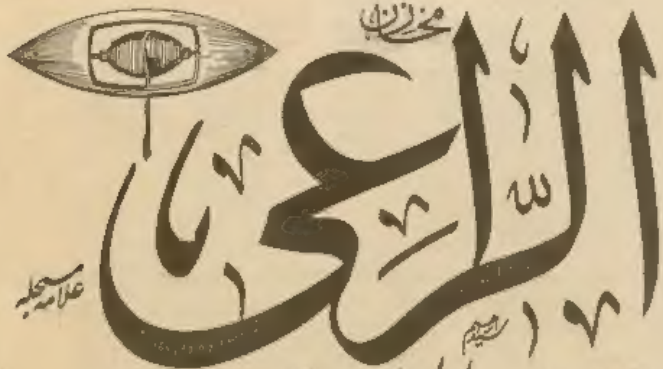 مخازن
الراعى
علامه مسجله